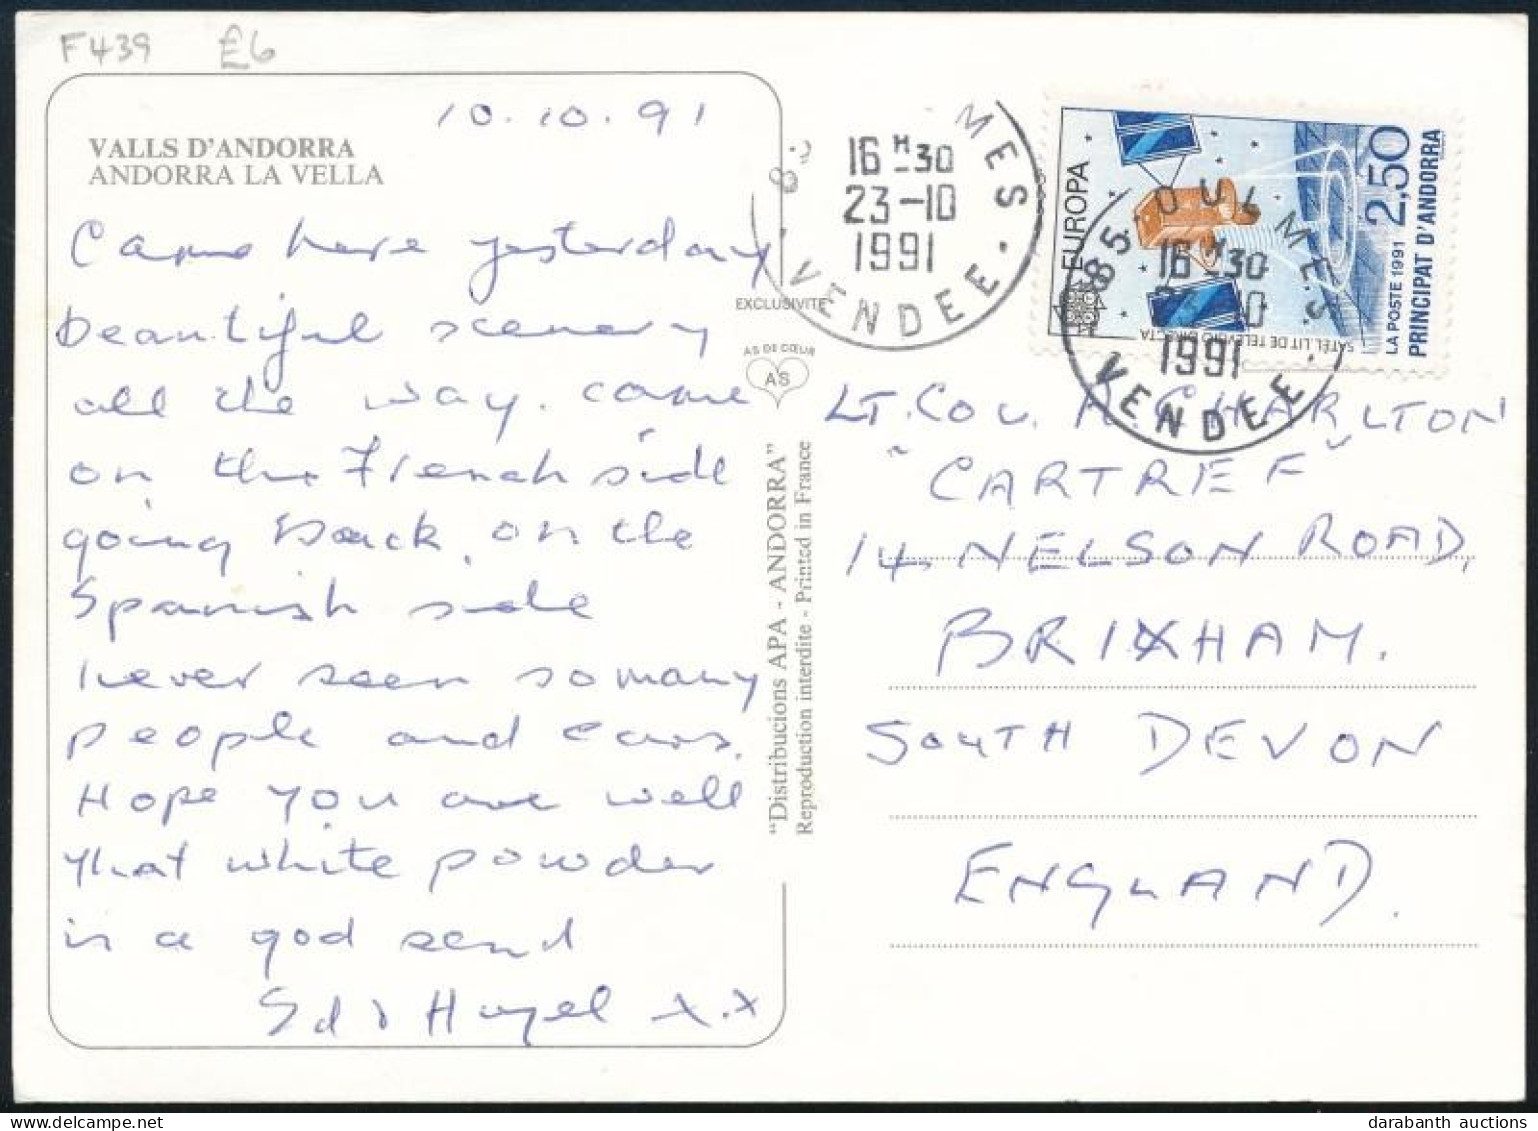 F439 £6
10.10.91
VALLS D'ANDORRA
ANDORRA LA VELLA
Came here yesterday
beautiful scenery
all the way. came
on the French side
going back, on the
Spanish side
never seen so many
people and cars.
Hope you are well
that white powder
is a god send
Ed & Hazel x.x
EXCLUSIVITE
AS DE CŒUR
AS
"Distribucions APA - ANDORRA"
Reproduction interdite - Printed in France
MES
16 H 30
23-10
1991
VENDEE
EUROPA
SATÈL.LIT DE TELEVISIÓ DIRECTA
2,50
LA POSTE 1991
PRINCIPAT D'ANDORRA
85 OULMES
16 H 30
1991
VENDEE
LT. COL. CHARLTON
"CARTREF"
14, NELSON ROAD,
BRIXHAM.
SOUTH DEVON
ENGLAND.
darabanth auctions